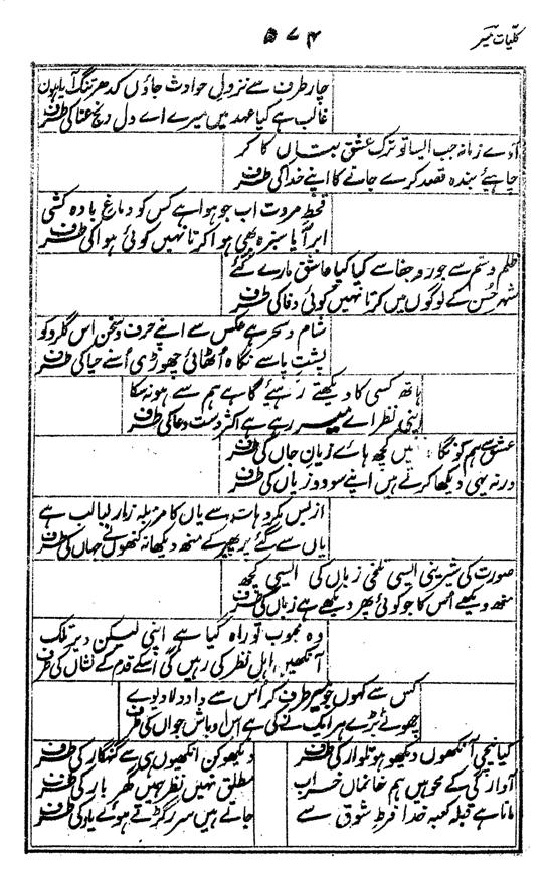 کلیات میر
۵۷۴
چار طرف سے نزولِ حوادث جاؤں کدھر تنگ آیا ہوں
غالب ہے کیا عہد میں میرے اے دل رنج و عنا کی طرف
آوے زمانہ جب ایسا تو ترک عشق بتاں کا کر
چاہیئے بندہ قصد کرے جانے کا اپنے خدا کی طرف
قحط مروت اب جو ہوا ہے کس کو دماغِ بادہ کشی
ابر آیا سبزہ بھی ہوا کرتا نہیں کوئی ہوا کی طرف
ظلم و ستم سے جور و جفا سے کیا کیا عاشق مارے گئے
شہر حُسن کے لوگوں میں کرتا نہیں کوئی وفا کی طرف
شام و سحر ہے عکس سے اپنے حرف و سخن اس گلرو کو
پشت پا سے نگاہ اُٹھائی چھوڑی اُسنے حیا کی طرف
ہاتھ کسی کا دیکھتے رہیئے گاہے ہم سے ہو نہ سکا
اپنی نظر اے میر رہے ہے اکثر دست دعا کی طرف
عشق سے ہم کو نگاہ نہیں کچھ ہائے زیانِ جاں کی طرف
ورنہ یہی دیکھا کرتے ہیں اپنے سود و زیاں کی طرف
از بس مکروہات سے یاں کا مزبلہ زار لبالب ہے
یاں سے گئے پر پھیر کے منھ دیکھا نہ کنھوں نے جہاں کی طرف
صورت کی شیرینی ایسی تلخی زباں کی ایسی کچھ
منھ دیکھے اُس کا جو کوئی پھر دیکھے ہے زباں کی طرف
وہ محبوب تو راہ گیا ہے اپنی لیکن دیر تلک
آنکھیں اہل نظر کی رہیں گی اسکے قدم کے نشاں کی طرف
کس سے کہوں جو میر طرف کر اُس سے داد دلا دیوے
چھوٹے بڑے ہر ایک نے کی ہے اس اوباش جواں کی طرف
کیا نیچی آنکھوں دیکھو ہو تلوار کی طرف
دیکھو کن انکھیوں ہی سے گنہگار کی طرف
آوارگی کے محو ہیں ہم خانماں خراب
مطلق نہیں نظر ہمیں گھر بار کی طرف
مانا ہے قبلہ کعبہ خدا فرطِ شوق سے
جاتے ہیں سر رگڑتے ہوئے یار کی طرف